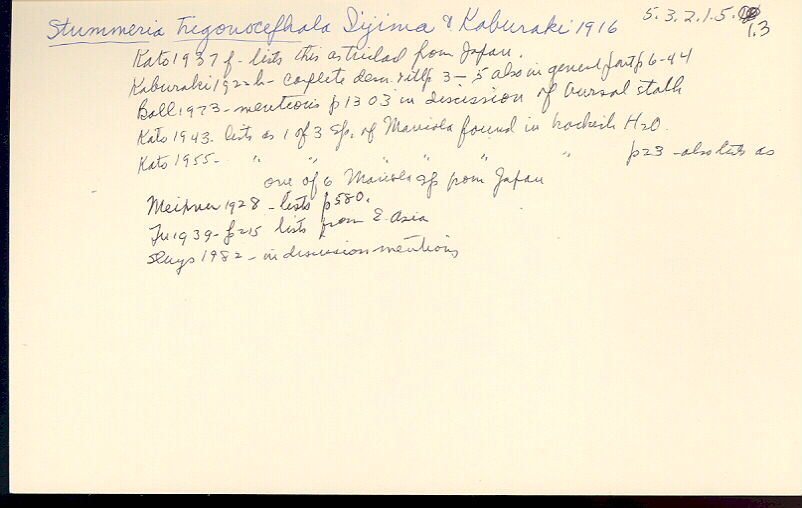 Stummeria trigonocephala Iijima & Kaburaki 1916 5.3.2.1.5. 1.3
Kato 1937f - lists this as triclad from Japan.
Kaburaki 1922b - complete desc. p 3-5 also in general part p 6-44
Ball 1973 - mentions p 1303 in discission of bursal stalk
Kato 1943. lists as 1 of 3 sp. of Maricola found in H2O.
Kato 1955 - " " " " " " p23 - also lists as
one of 6 Maricola sp from Japan
Meixner 1928 - lists p580.
Tu 1939 - p215 lists from E. Asia
Sluys 1982 - in discussion mentions